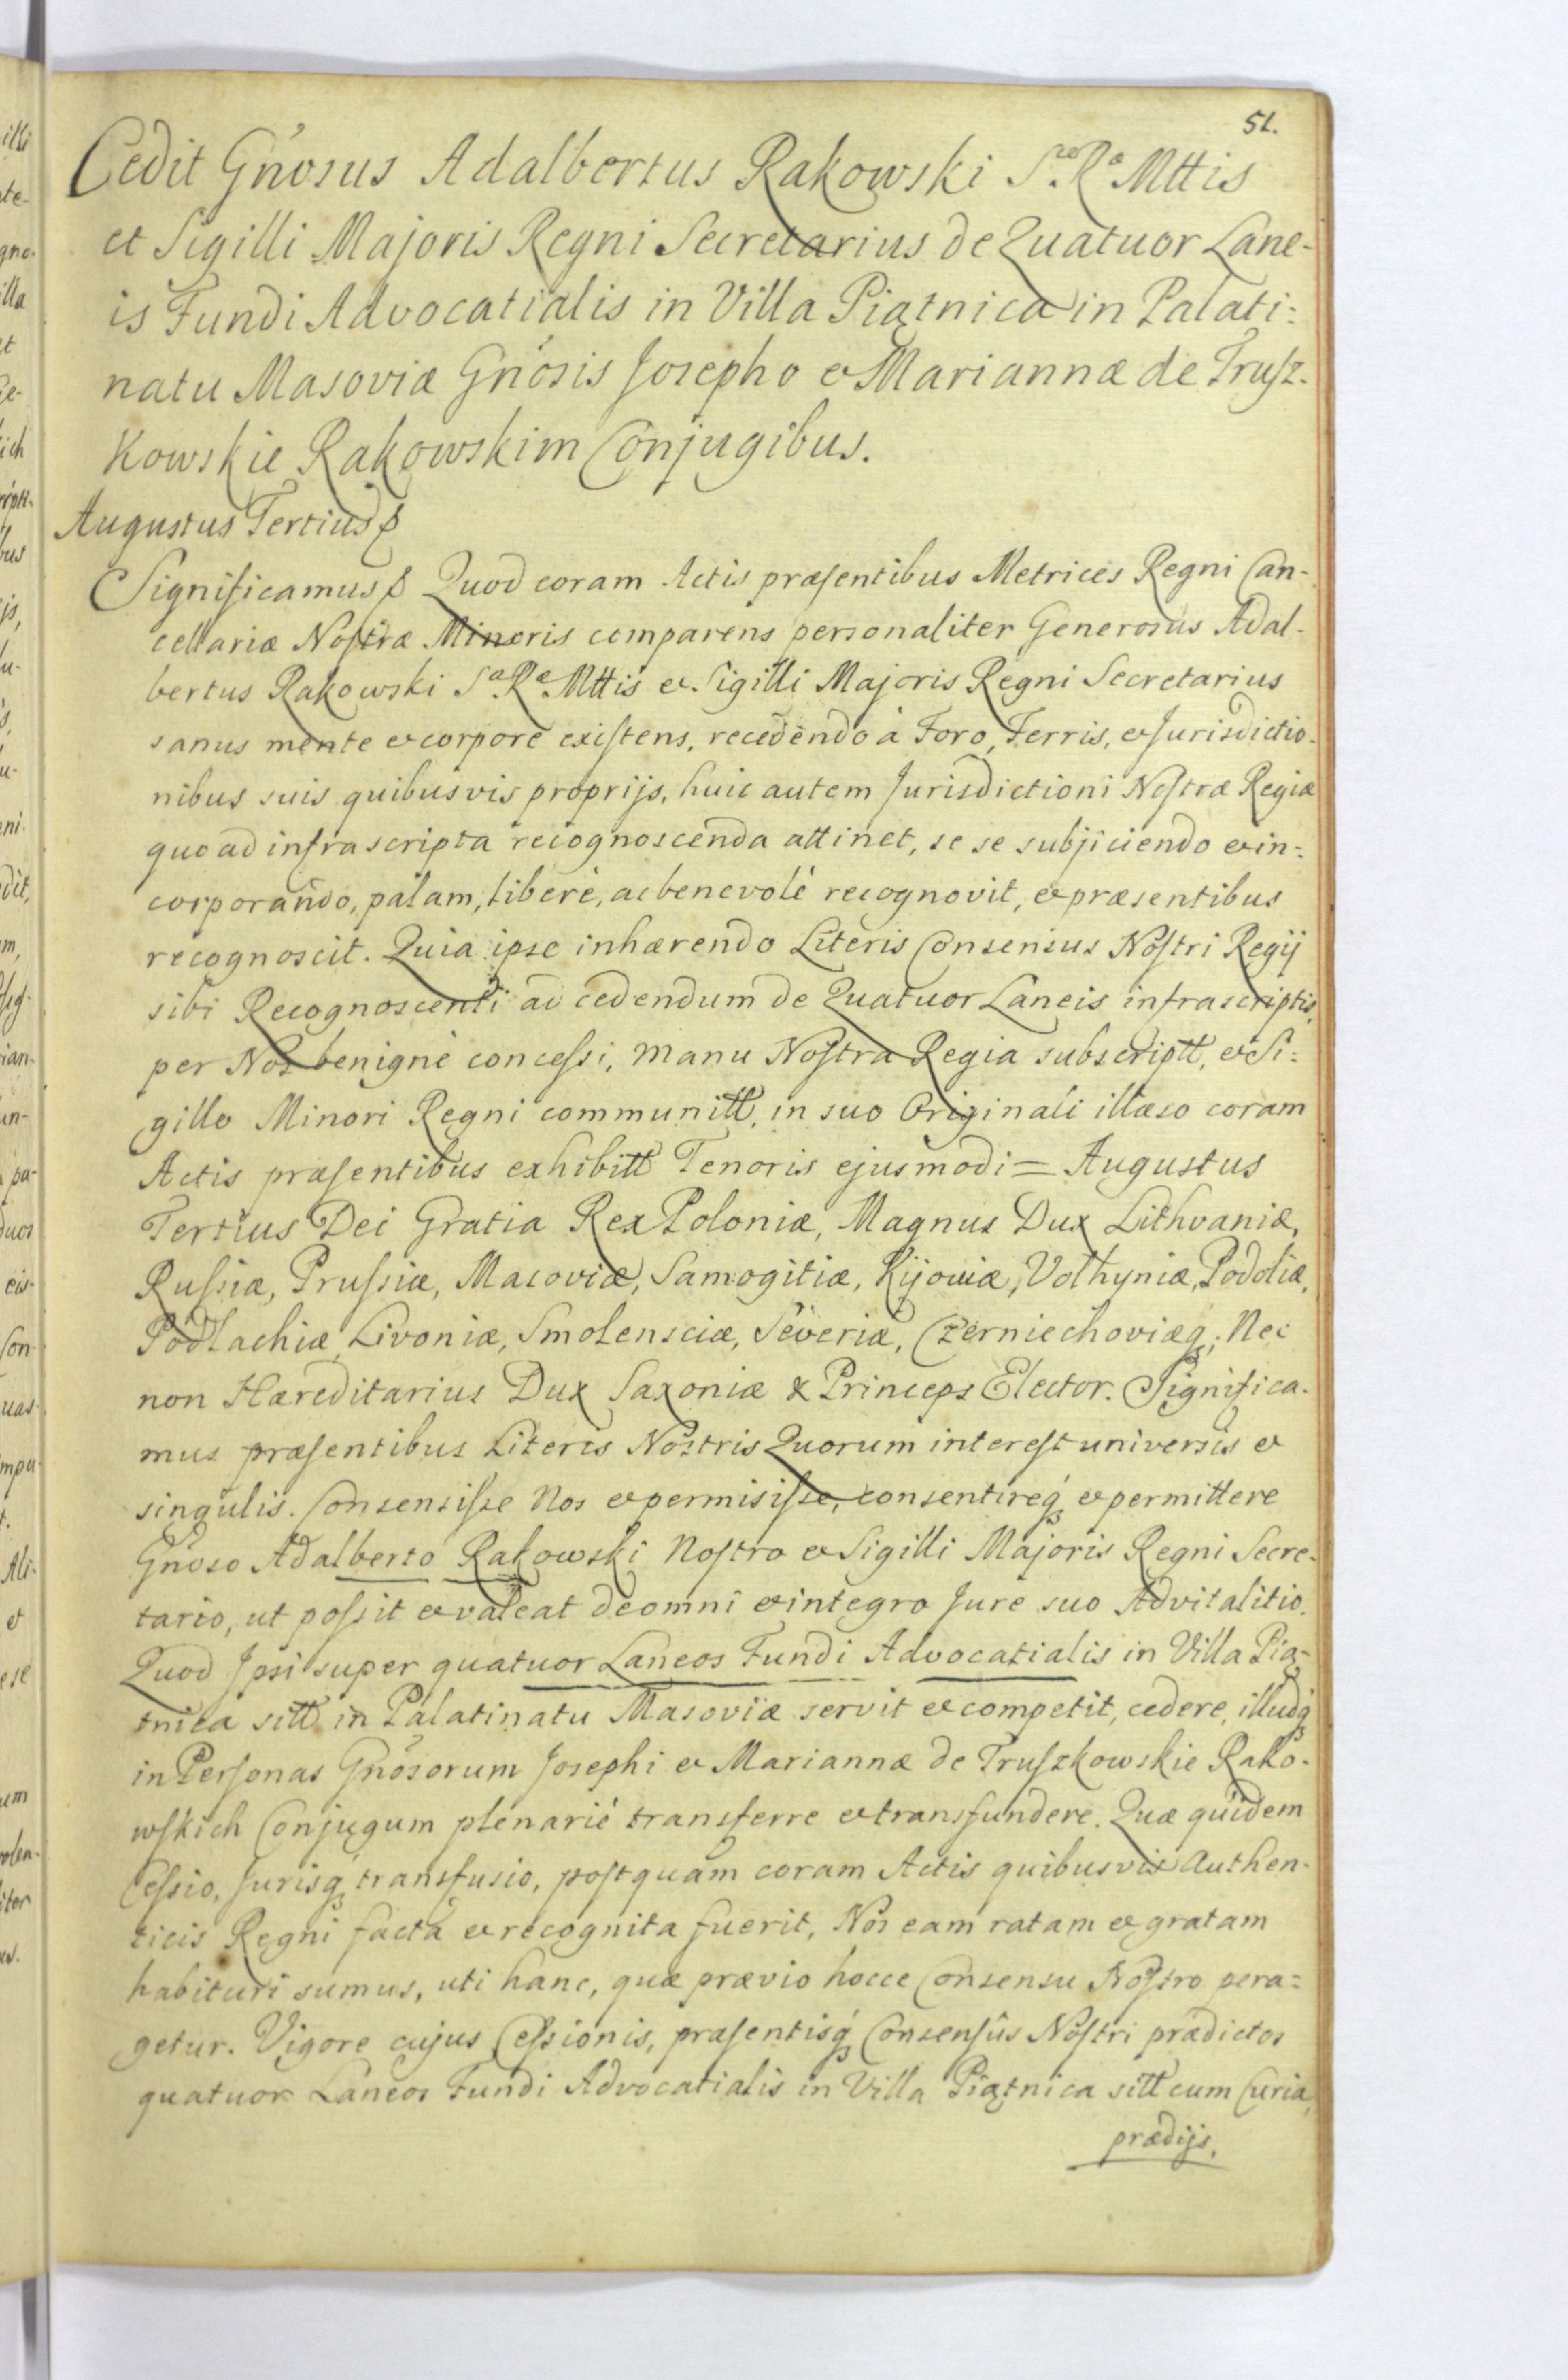 51.
Cedit Gnosus Adalbertus Rakowski Sae Rae Mttis
et Sigilli Majoris Regni Secretarius de Quatuor Lane-
is Fundi Advocatialis in Villa Piątnica in Palati:
natu Masoviæ Gnosis Josepho & Mariannæ de Trusz-
kowskie Rakowskim Conjugibus.
Augustus Tertius
Significamus Quod coram Actis præsentibus Metrices Regni Can-
cellariæ Nostræ Minoris comparens personaliter Generosus Adal-
bertus Rakowski Sae Rae Mttis & Sigilli Majoris Regni Secretarius
sanus mente & corpore existens, recedendo à Foro, Terris, & Jurisdictio-
nibus suis quibusvis proprijs, huic autem Jurisdictioni Nostræ Regiæ
quo ad infrascripta recognoscenda attinet, se se subjiciendo & in:
corporando, palam, liberè, ac benevolè recognovit, & præsentibus
recognoscit. Quia ipse inhærendo Literis Consensus Nostri Regij
sibi Recognoscenti ad cedendum de Quatuor Laneis infrascriptis,
per Nos benignè concessi, manu Nostra Regia subscriptt, & Si:
gillo Minori Regni communitt, in suo Originali illæso coram
Actis præsentibus exhibitt Tenoris ejusmodi = Augustus
Tertius Dei Gratia Rex Poloniæ, Magnus Dux Lithvaniæ,
Russiæ, Prussiæ, Masoviæ, Samogitiæ, Kijoviæ, Volhyniæ, Podoliæ,
Podlachiæ, Livoniæ, Smolensciæ, Severiæ, Czerniechoviæq; Nec
non Hæreditarius Dux Saxoniæ & Princeps Elector. Significa-
mus præsentibus Literis Nostris Quorum interest universis &
singulis. Consensisse Nos & permisisse, consentireq; & permittere
Gnoso Adalberto Rakowski Nostro & Sigilli Majoris Regni Secre-
tario, ut possit & valeat de omni & integro Jure suo Advitalitio.
Quod Ipsi super quatuor Laneos Fundi Advocatialis in Villa Pią-
tnica sitt in Palatinatu Masoviæ servit & competit, cedere, illudq;
in Personas Gnosorum Josephi & Mariannæ de Truszkowskie Rako-
wskich Conjugum plenariè transferre & transfundere. Quæ quidem
Cessio, Jurisq; transfusio, postquam coram Actis quibusvis Authen-
ticis Regni facta & recognita fuerit, Nos eam ratam & gratam
habituri sumus, uti hanc, quæ prævio hocce Consensu Nostro pera=
getur. Vigore cujus Cessionis, præsentisq; Consensûs Nostri prædictos
quatuor Laneos Fundi Advocatialis in Villa Piątnica sitt cum Curia,
prædijs,